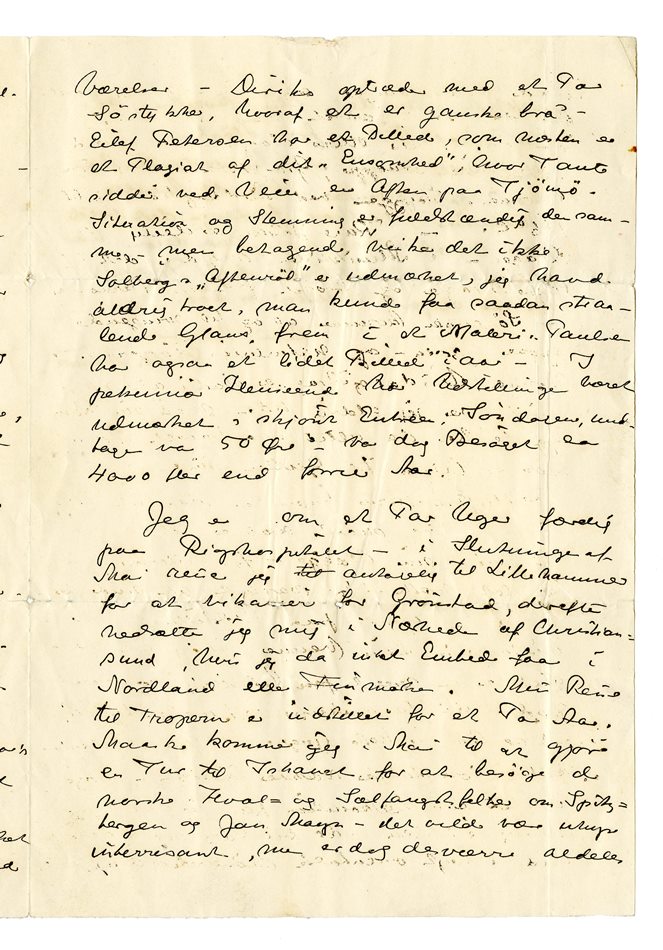 Værelser – Diriks optræder med et Par
Söstykker, hvoraf et er ganske bra –
Eilef Petersen har et Billede, som næsten er
et Plagiat af dit „Ensomhed“, hvor Tante
sidder ved Veien en Aften paa Tjömö –
Situation og Stemning er fuldstændig den sam-
me – men betagende virker det ikke
Solbergs „Aftenröd“ er udmærket, jeg havde
aldrig troet, man kunde faa saadan straa-
lende Glans frem i et Maleri. Paulsen
har ogsaa et lidet Billed iaar – I
pekuniær Henseende har Udstillingen været
udmærket, skjönt Entréen, Söndagen und-
tagen var 50 Öre – var dog Besöget ca
4000 fler end forrige Aar.
Jeg er om et Par Uger færdig
paa Rigshospitalet – i Slutningen af
Mai reiser jeg antagelig til Lillehammer
for at vikariere for Grönstad, derefter
nedsætter jeg mig i Nærheden af Christian-
sund, hvis jeg da intet Embede faar i
Nordland eller Finmarken. Min Reise
til Troperne er indstillet for et Par Aar.
Maaske kommer jeg i Mai til at gjöre
en Tur til Ishavet for at besöge de
norske Hval- og Sælfangstfelter om Spitz-
bergen og Jan Mayn – det vilde være uhyre
interressant, men er dog desværre aldeles